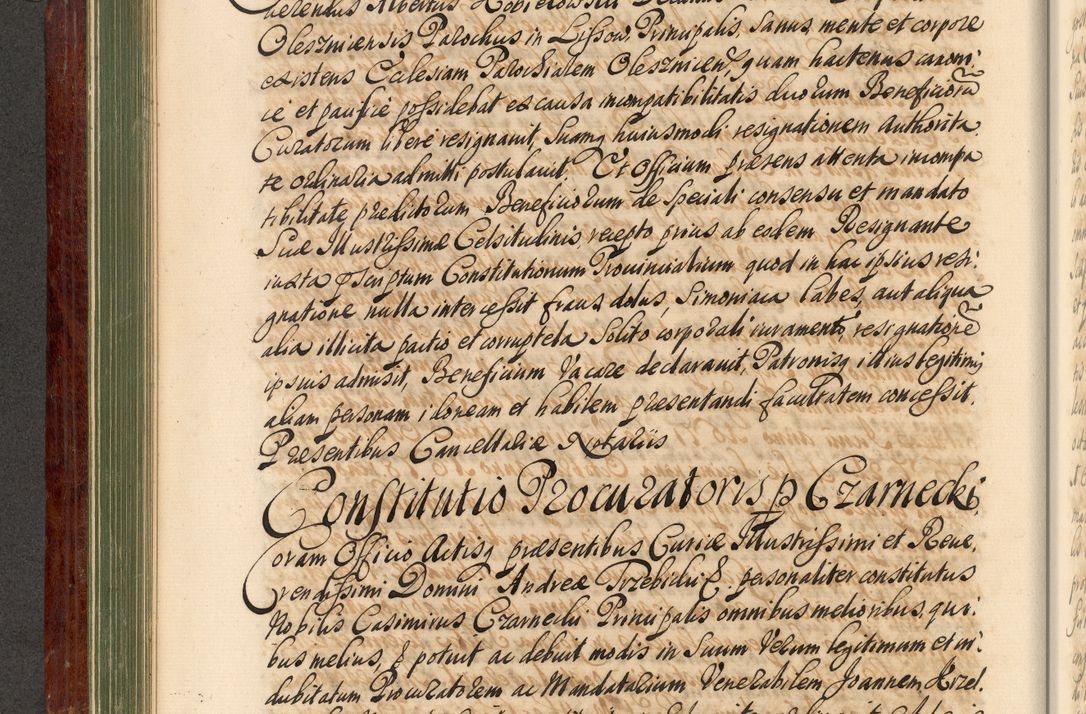 Olesznicensis Parochus in Lissow, Principalis, sanus mente et corpore
existens Ecclesiam Parochialem Olesznicen, quam hactenus canoni:
ce et pacifice possidebat ex causa incompatibilitatis duorum Beneficiorū
Curatorum libere resignauit, suamq huiusmodi resignationem Authorita
te ordinaria admitti postulauit. Et Officium præsens attenta incompa
tibilitate predictorum Beneficiorum de speciali consensu et mandato
Suæ Illustrissimæ Celsitudinis, recepto prius ab eodem Resignante
iuxta præscriptum Constitutionum Prouincialium quod in hac ipsius resi:
gnatione nulla intercessit fraus, dolus, simoniaca labes, aut aliqua
alia illicita pactio et corruptela solito corporali iuramento, resignationē
ipsius admisit, Beneficium Vacare declarauit, Patronisq illius legitimis
aliam personam idoneam et habilem præsentandi facultatem concessit.
Præsentibus Cancellariæ Notariis
Constitutio Procuratoris p Czarnecki
Coram Officio Actisq præsentibus Curiæ Illustrissimi et Reue,
rendissimi Domini Andreæ Trzebicki &. personaliter constitutus
Nobilis Casimirus Czarnecki Principalis omnibus melioribus, qui:
bus melius, & potuit ac debuit modis in suum Verum legitimum et in:
dubitatum Procuratorem ac Mandatarium Venerabilem Joannem Krzel.